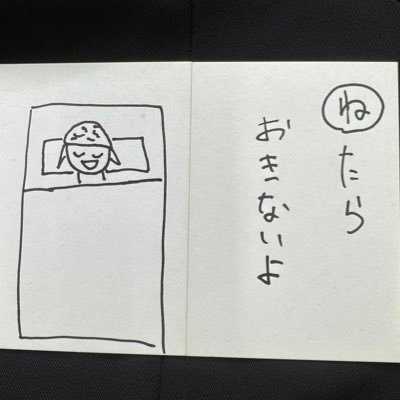 ねたら
おきないよ